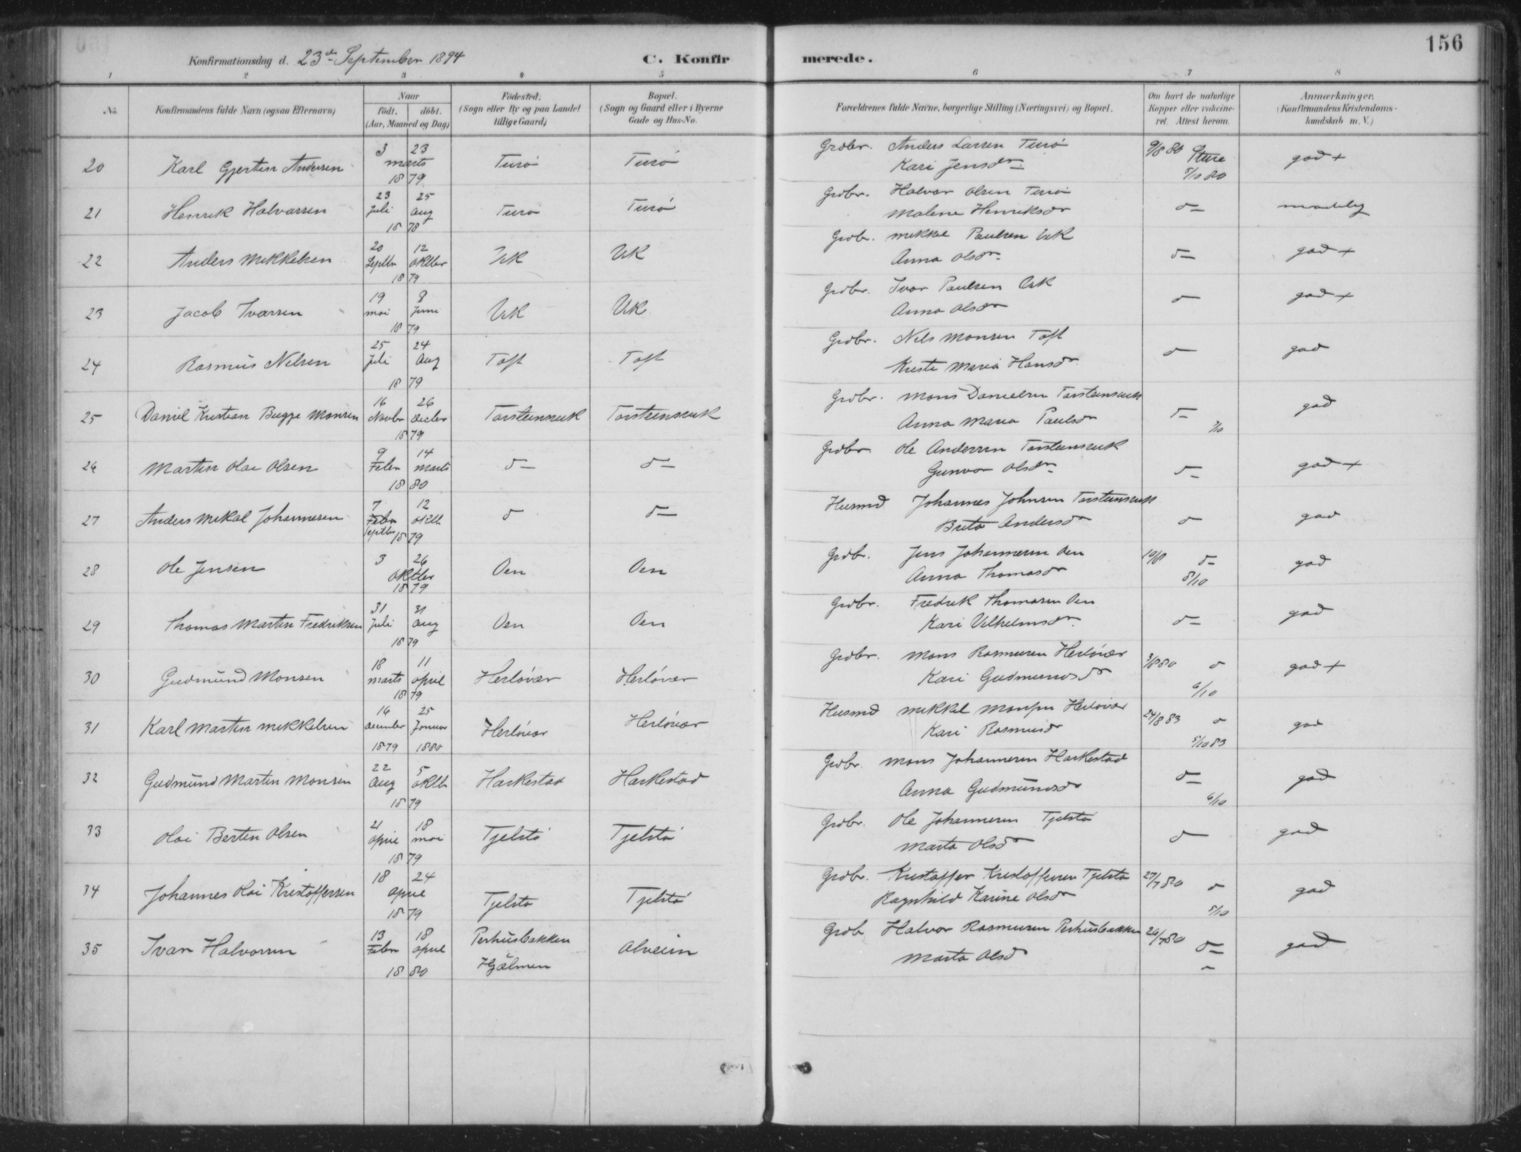 156
Konfirmationsdag d. 23de September 1894
C. Konfirmerede.
1 2 3 4 5 6 7 8
No.
Konfirmandens fulde Navn (ogsaa Efternavn)
Naar
Født. døbt.
(Aar, Maaned og Dag)
Fødested.
(Sogn eller By og paa Landet tillige Gaard)
Bopæl.
(Sogn og Gaard eller i Byerne Gade og Hus-No.
Forældrenes fulde Navne, borgerlige Stilling (Næringsvei) og Bopæl.
Om havt de naturlige Kopper eller vaksineret. Attest herom.
Anmærkninger.
(Konfirmandens Kristendomskundskab m. V.)
20 Karl Gjertin Andersen 3 23 marts 1879 Turø Turø Grdbr. Anders Larsen Turø Kari Jensdr 9/8 80 Sture 7/10 80 god +
21 Henrik Halvorsen 23 Juli 25 Aug 1878 Turø Turø Grdbr. Halvor Olsen Turø Malene Henriksdr
22 Anders Mikkelsen 20 Septbr 12 Oktbr 1879 Uk Uk Grdb. Mikkel Paulsen Uk Anna Olsdr god +
23 Jacob Ivarsen 19 mai 8 Juni 1879 Uk Uk Grdbr. Ivar Paulsen Uk Anna Olsdr god +
24 Rasmus Nilsen 25 Juli 24 Aug 1879 Toft Toft Grdbr. Nils Monsen Toft Maria Hansdr god
25 Daniel Kristian Bugge Monsen 16 Novbr 26 Decbr 1879 Torsteinsvik Torsteinsvik Grdbr. Mons Danielsen Torsteinsvik Anna Maria Paulsdr god
26 Martin Olai Olsen 9 Febr 14 Marts 1880 d d Grdbr Ole Andersen Torsteinsvik Gunvor Olsdr god +
27 Anders Mikal Johannesen 7 Septbr 12 Oktb 1879 d d Husmd Johannes Johnsen Torsteinsvik Brita Andersdr god
28 Ole Jensen 3 26 Oktbr 1879 Oen Oen Grdbr. Jens Johannesen Oen Anna Thomasdr 8/10 god
29 Thomas Martin Fredriksen 31 Juli 31 Aug 1879 Oen Oen Grdbr. Fredrik Thomasen Oen Kari Vilhelmsdr god
30 Gudmund Monsen 18 marts 11 april 1879 Herløvær Herløvær Grdbr. Mons Rasmusen Herløvær Kari Gudmundsdr 6/10 god +
31 Karl Martin Mikkelsen 16 december 1879 25 Januar 1880 Herløvær Herløvær Husmd Mikkel Monsen Herløvær Kari Rasmusdr 24/8 83 5/10 83 god
32 Gudmund Martin Monsen 22 Aug 5 Oktb 1879 Harkestad Harkestad Grdbr. Mons Johannesen Harkestad Anna Gudmundsdr 6/10 god
33 Olai Bertin Olsen 21 April 18 mai 1879 Tjelstø Tjelstø Grdbr. Ole Johannesen Tjelstø Marta Olsdr god
34 Johannes Olai Kristoffersen 18 24 April 1879 Tjelstø Tjelstø Grdbr. Kristoffer Kristoffersen Tjelstø Ragnhild Karine Olsdr 27/7 80 god
35 Ivar Halvorsen 13 Febr 18 April 1880 Perhusbakken Hjälmen Alveim Grdb Halvor Rasmusen Perhusbakken Marta Olsd 26/7 80 god